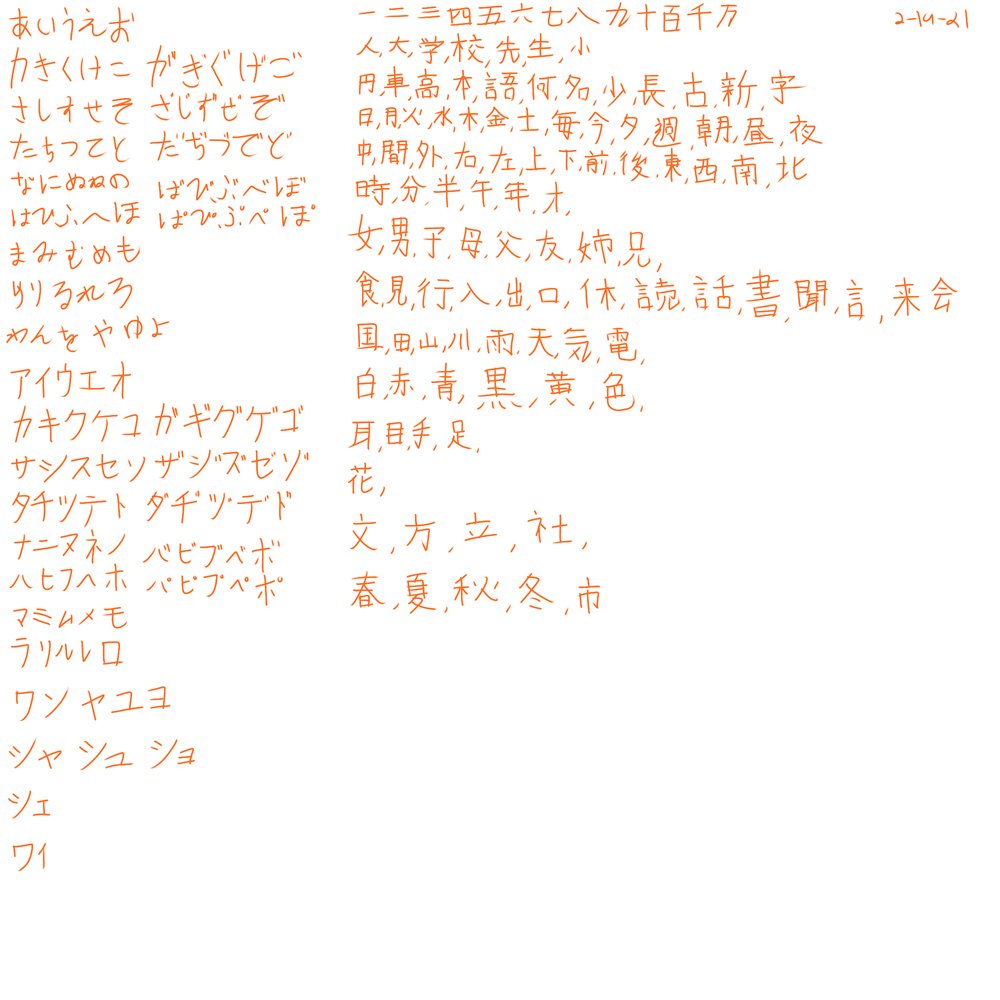 あいうえお
かきくけこ がぎぐげご
さしすせそ ざじずぜぞ
たちつてと だぢづでど
なにぬねの
ばびぶべぼ
はひふへほ
ぱぴぷぺぽ
まみむめも
らりるれろ
わんを やゆよ
アイウエオ
カキクケコ ガギグゲゴ
サシスセソ ザジズゼゾ
タチツテト ダヂヅデド
ナニヌネノ
バビブベボ
ハヒフヘホ
パピプペポ
マミムメモ
ラリルレロ
ワン ヤユヨ
シャ シュ ショ
シェ
ワイ
一二三四五六七八九十百千万
2-19-21
人,大,学,校,先,生,小
円,車,高,本,語,何,名,少,長,古,新,字
日,月,火,水,木,金,土,毎,今,夕,週,朝,昼,夜
中,間,外,右,左,上,下,前,後,東,西,南,北
時,分,半,午,年,才,
女,男,子,母,父,友,姉,兄,
食,見,行,入,出,口,休,読,話,書,聞,言,来会
国,田,山,川,雨,天,気,電,
白,赤,青,黒,黄,色,
耳,目,手,足,
花,
文,方,立,社,
春,夏,秋,冬,市